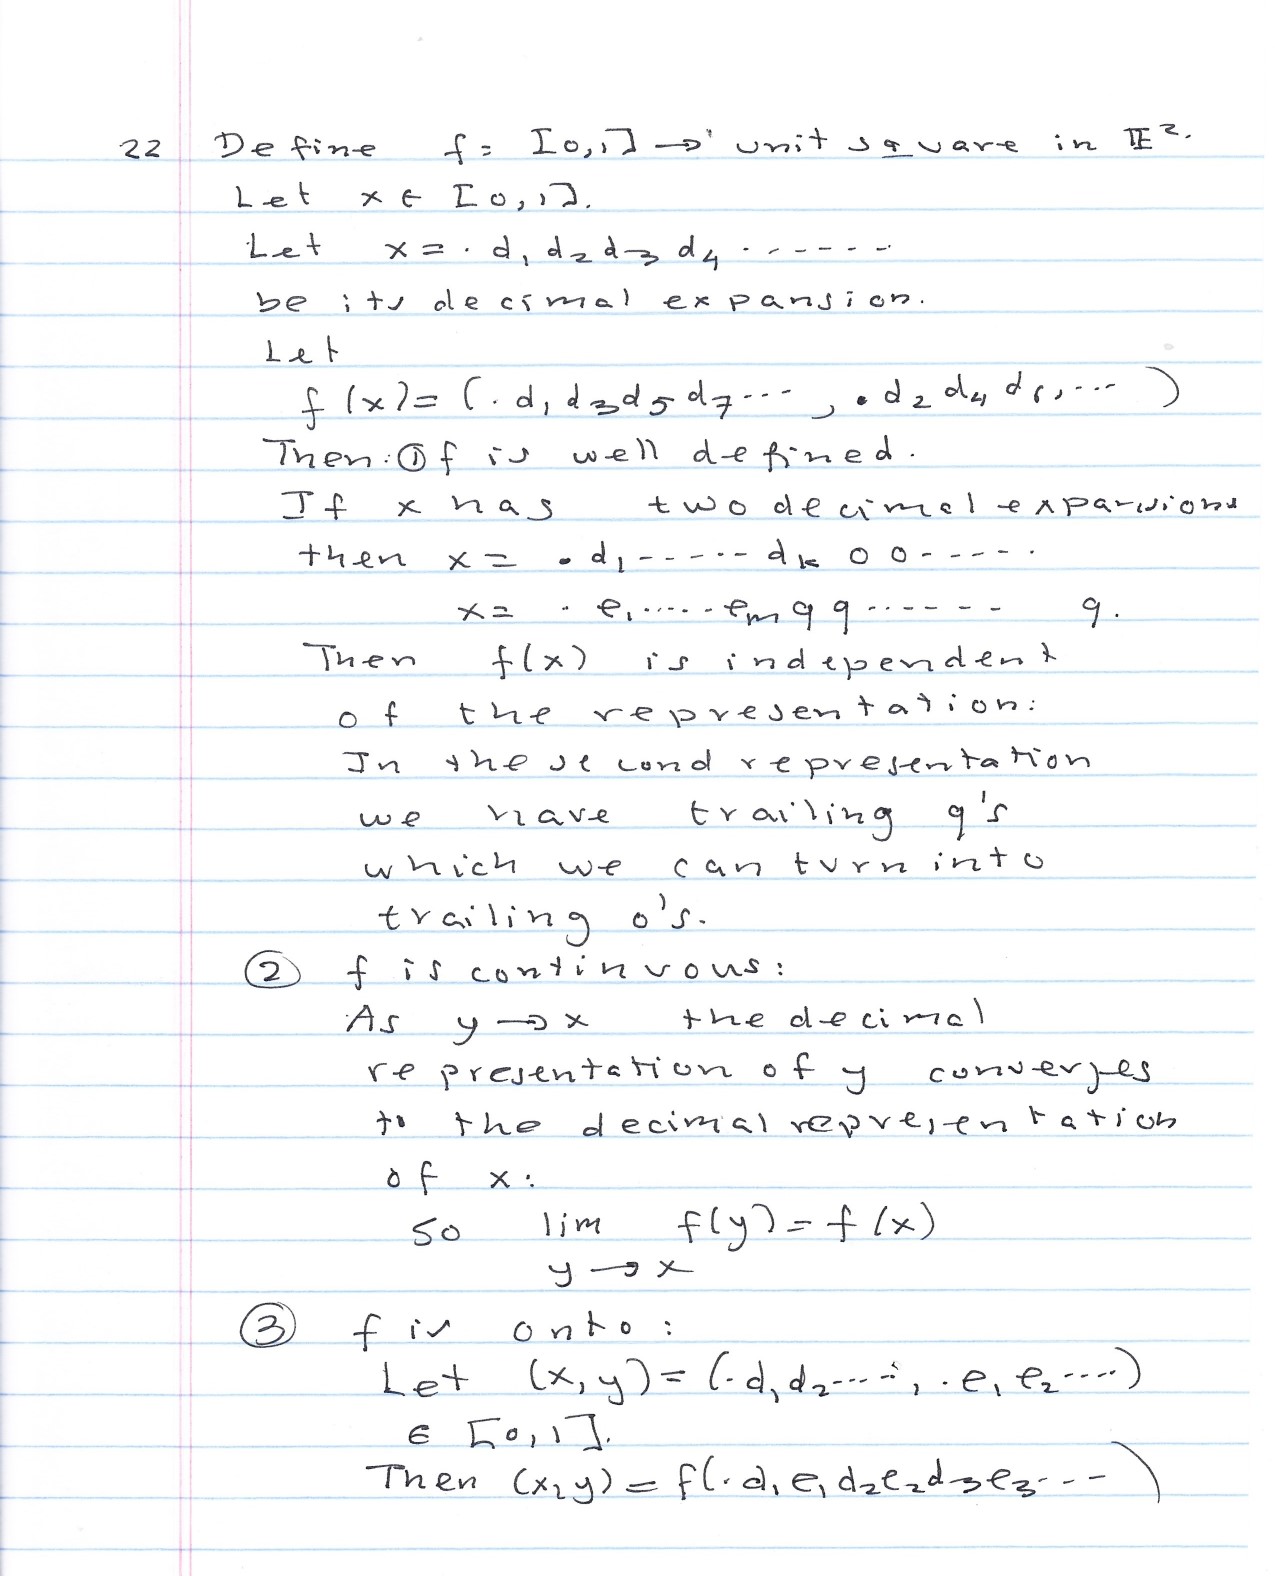 22 Define f: [0,1] → unit square in E².
Let x ∈ [0,1].
Let x = . d₁ d₂ d₃ d₄ ......
be its decimal expansion.
Let
f(x) = (. d₁ d₃ d₅ d₇ ... , . d₂ d₄ d₆, ... )
Then: ① f is well defined.
If x has two decimal expansions
then x = . d₁ ...... dₖ 0 0 ......
x = . e₁ ..... eₘ 9 9 ...... 9.
Then f(x) is independent
of the representation:
In the second representation
we have trailing 9's
which we can turn into
trailing 0's.
② f is continuous:
As y → x the decimal
representation of y converges
to the decimal representation
of x:
So lim f(y) = f(x)
y → x
③ f is onto:
Let (x, y) = (. d₁ d₂ ....., . e₁ e₂ ....)
∈ [0,1].
Then (x, y) = f(. d₁ e₁ d₂ e₂ d₃ e₃ ... )